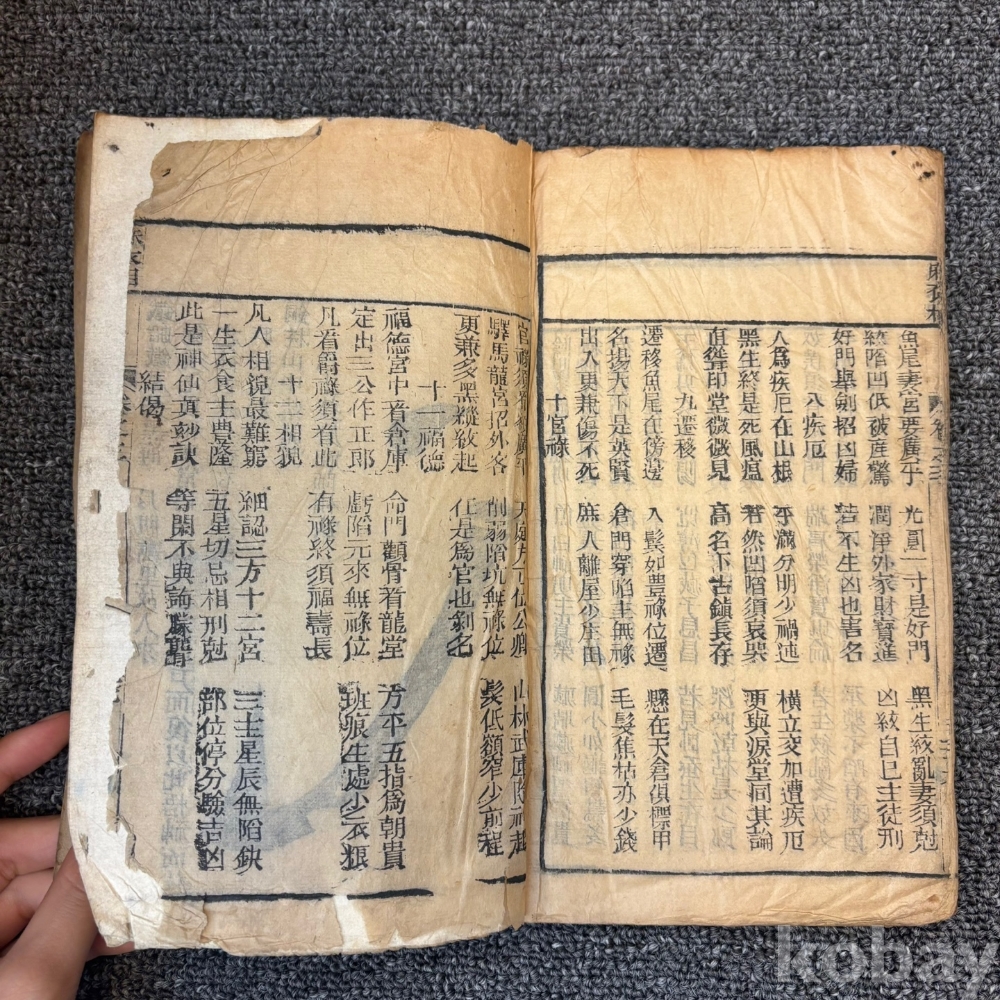 魚尾妻宮要廣平 光圓一寸是好門 黑生紋亂妻須尅
終陷凹低破産驚 潤淨外家財寳進 凶紋自巳主徒刑
好門舉劍招凶婦 若不生凶也害名
八疾厄
人爲疾厄在山根 平滿分明少禍迍 橫立交加遭疾厄
黑生終是死風瘟 若然凹陷須哀哭 更與淚堂同其論
面聳印堂微微見 高名下古鎮長存
九遷移
遷移魚尾在傍邉 入髮如豊祿位遷 懸在天倉俱標甲
名塲天下是英賢 倉門穿陷主無緣 毛髮焦枯亦少錢
出入更兼傷不死 庶人離屋少庄田
十官祿
官祿須 山林武庫
驛馬龍宮招外客 削弱陷坑無祿位 髮低額窄少前程
更兼多黑縱敎起 任是爲官也剝名
十一福德
福德宮中看倉庫 命門觀骨看龍堂 方平五指爲朝貴
定出三公作正郎 虧陷元來無祿位 班痕生處少衣粮
凡看爵祿須看此 有祿終須福壽長
十二相貌
凡人相貌最難窮 細認三方十二宮 三主星辰無陷缺
一生衣食主豊隆 五星切忌相刑尅 部位停分驗吉凶
此是神仙真玅訣 等閑不與論朦朧
結偈
kobay